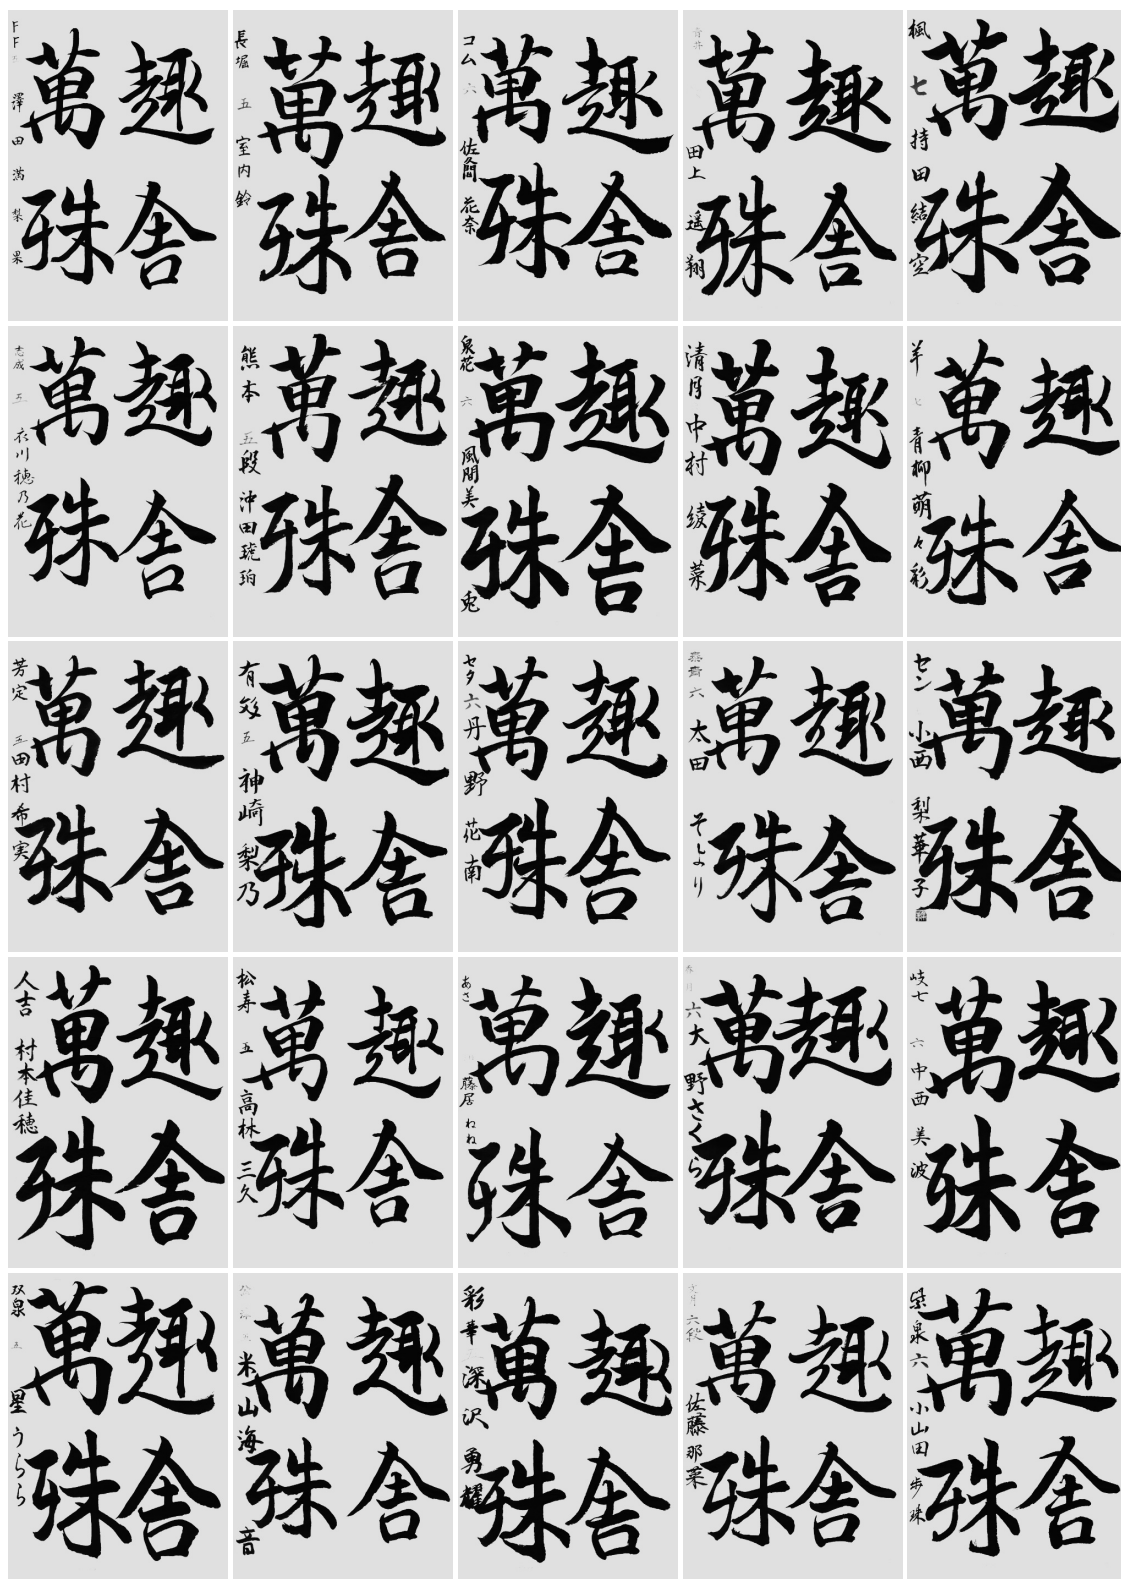 趣舎
萬殊
澤田 満梨果
趣舎
萬殊
長堀 五 室内 鈴
趣舎
萬殊
コム 六 佐 花奈
趣舎
萬殊
青井 田上 遥翔
趣舎
萬殊
楓 七 持田 結空
趣舎
萬殊
志成 五 衣川穂乃花
趣舎
萬殊
熊本 五段 沖田琥珀
趣舎
萬殊
泉花 六 風間美兎
趣舎
萬殊
清月 中村 綾菜
趣舎
萬殊
羊 七 青柳萌々彩
趣舎
萬殊
芳定 五 田村希実
趣舎
萬殊
有 五 神崎 梨乃
趣舎
萬殊
セタ 六 丹野 花南
趣舎
萬殊
六 太田 そより
趣舎
萬殊
セン 小西 梨華子
趣舎
萬殊
人吉 村本佳穂
趣舎
萬殊
松寿 五 高林 三久
趣舎
萬殊
あさ 藤居 ねね
趣舎
萬殊
春月 六 大野さくら
趣舎
萬殊
岐七 六 中西 美波
趣舎
萬殊
双泉 五 星 うらら
趣舎
萬殊
米山 海音
趣舎
萬殊
彩華 五 深沢 勇耀
趣舎
萬殊
文月 六段 佐藤那菜
趣舎
萬殊
泉 六 小山田 歩珠